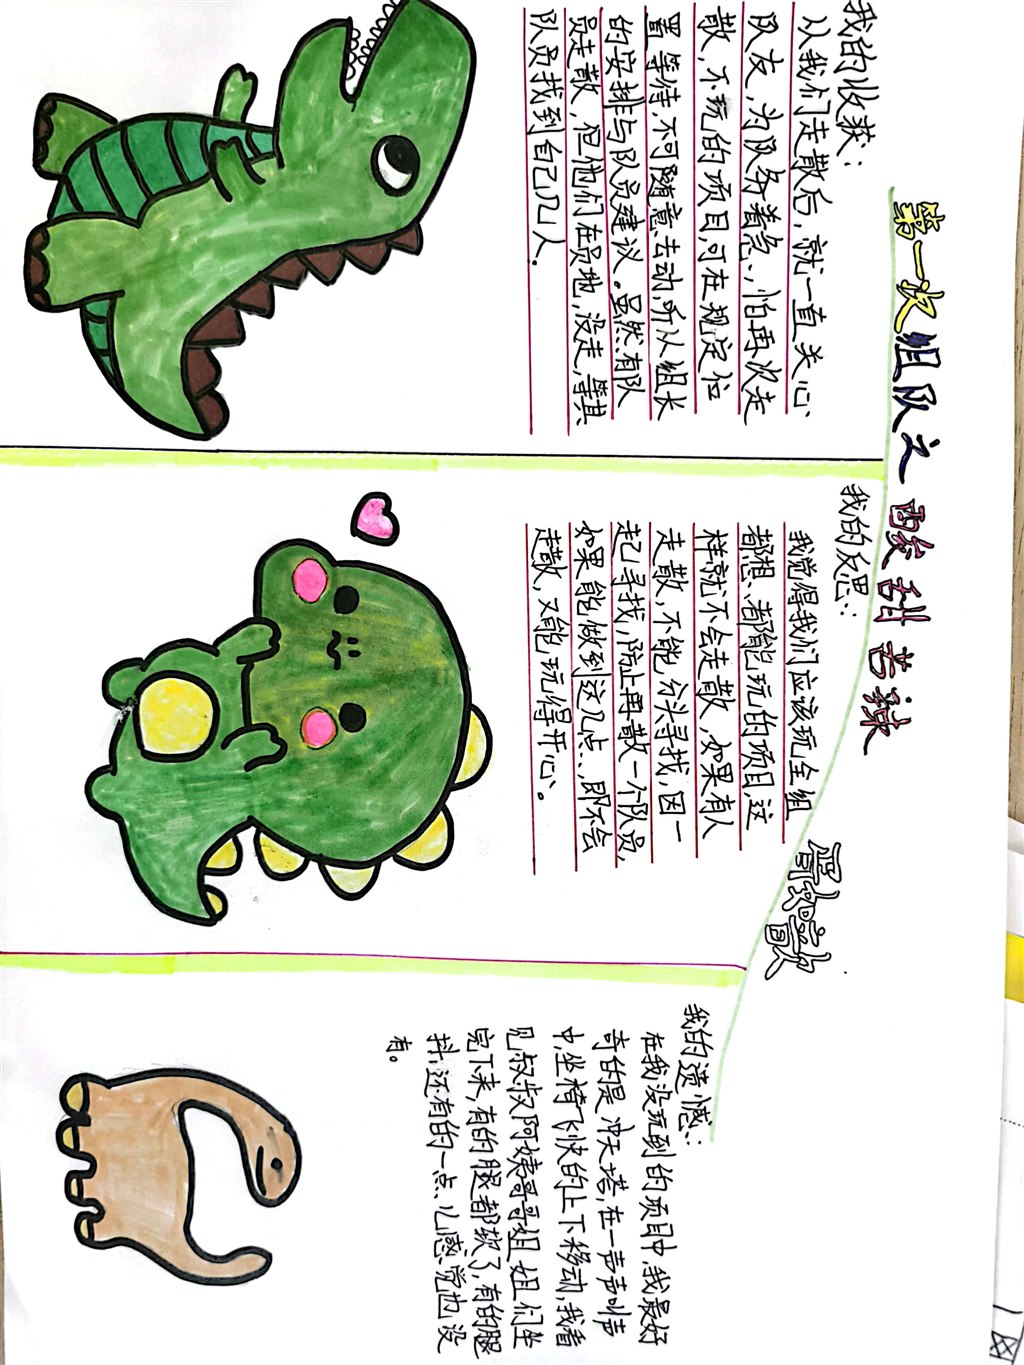 第一次组队之酸甜苦辣
我的收获：
从我们走散后，就一直关心
队友，为队务着急，怕再次走
散，不玩的项目，可在规定位
置等待，不可随意去动，听从组长
的安排与队员建议。虽然有队
员走散，但他们在员地，没走，等其
队员找到自己几人．
我的反思：
我觉得我们应该玩全组
都想、都能玩的项目，这
样就不会走散，如果有人
走散，不能分头寻找，因一
起寻找，防止再散一个队员，
如果能做到这几点、，即不会
走散，又能玩得开心。
我的遗憾：
在我没玩到的项目中，我最好
奇的是冲天塔，在一声声叫声
中，坐椅飞快的上下移动，我看
见叔叔阿姨哥哥姐姐们坐
完下来，有的腿都软了，有的腿
抖，还有的一点儿感觉也没
有。